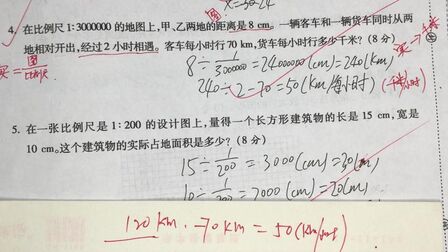 4. 在比例尺 1∶3000000 的地图上,甲、乙两地的距离是 8 cm。一辆客车和一辆货车同时从两
地相对开出,经过 2 小时相遇。客车每小时行 70 km,货车每小时行多少千米?(8 分)
图
实=图/比例尺
8÷1/3000000=24000000(cm)=240(km)
240÷2-70=50(km/每小时)
5. 在一张比例尺是 1∶200 的设计图上,量得一个长方形建筑物的长是 15 cm,宽是
10 cm。这个建筑物的实际占地面积是多少?(8 分)
15÷1/200=3000(cm)=30(m)
10÷1/200=2000(cm)=20(m)
120km-70km=50(km/